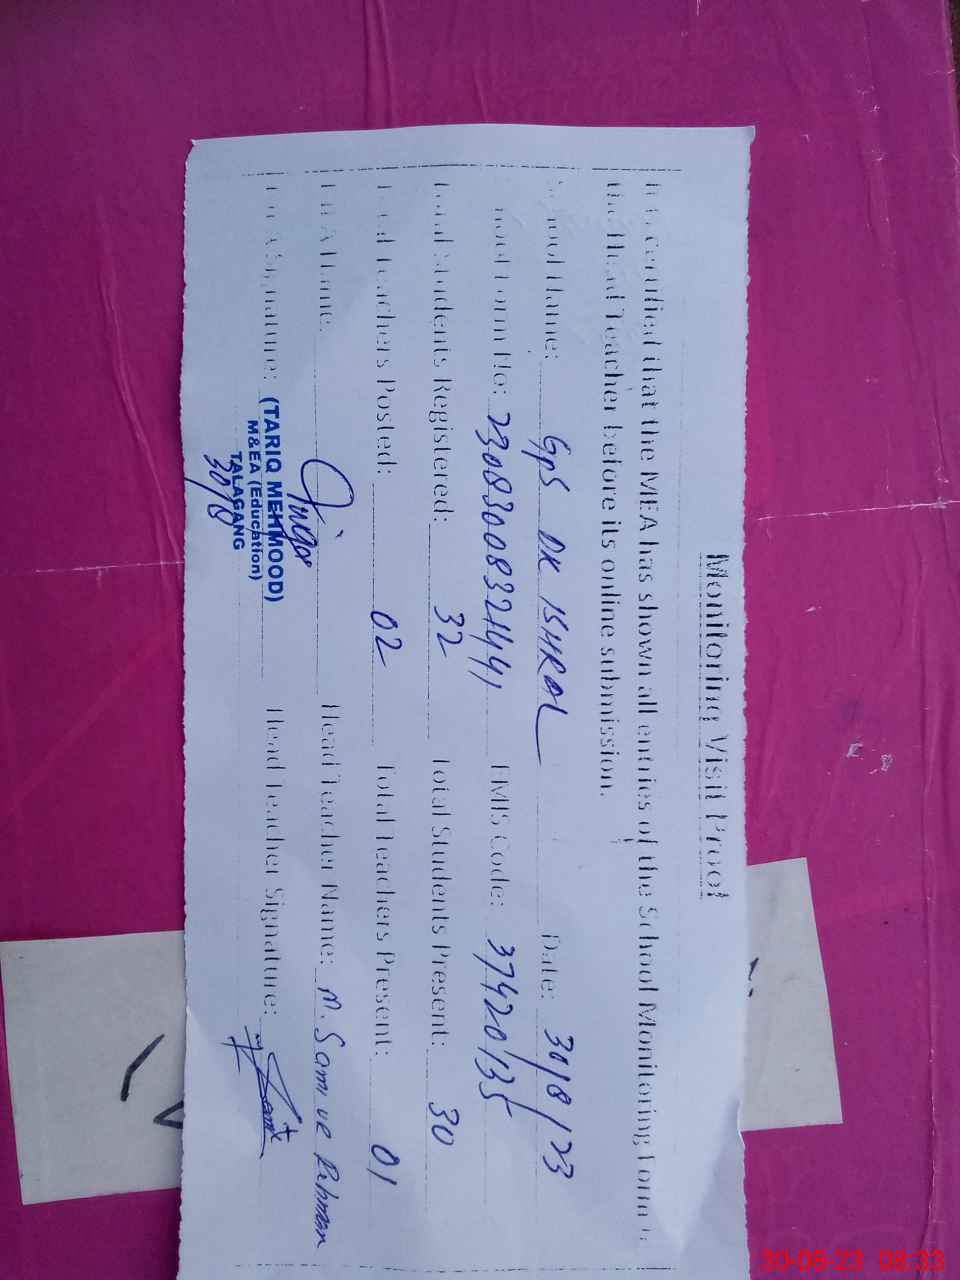 Monitoring Visit Proof
It is certified that the MEA has shown all entries of the School Monitoring Form to
the Head Teacher before its online submission.
School Name: GPS DK Date: 30/8/23
School Form No: EMIS Code: 37420135
Total Students Registered: 32 Total Students Present: 30
Total Teachers Posted: 02 Total Teachers Present: 01
MEA Name: Head Teacher Name: M. Sami ur Rehman
MEA Signature: Head Teacher Signature:
(TARIQ MEHMOOD)
M&EA (Education)
TALAGANG
30/8
30-08-23 08:33